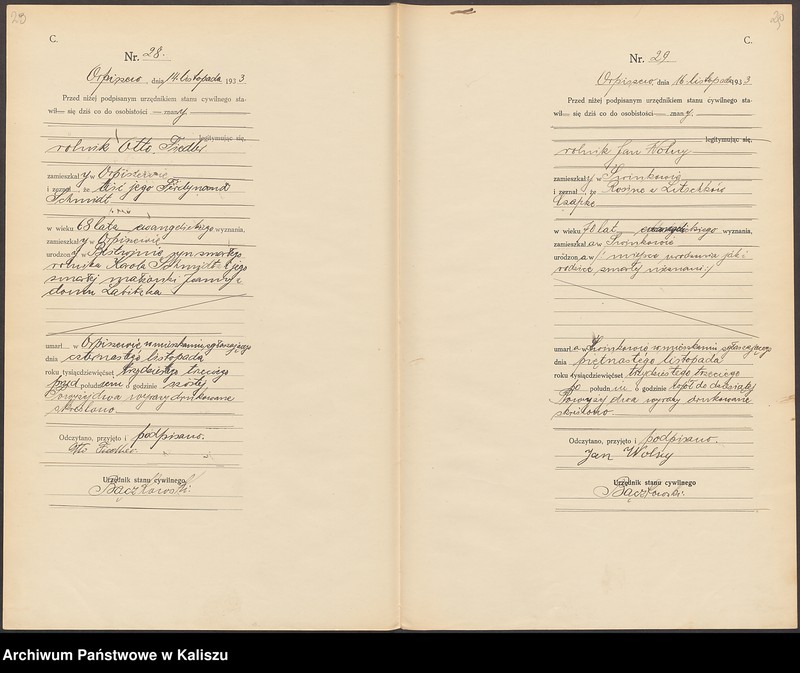 C.
Nr. 28.
Orpiszew, dnia 14. listopada 1933
Przed niżej podpisanym urzędnikiem stanu cywilnego sta-
wił się dziś co do osobistości znany
legitymując się,
rolnik Otto Fiedler
zamieszkały w Orpiszewie
i zeznał, że teść jego Ferdynand
Schmidt
w wieku 68 lata ewangelickiego wyznania,
zamieszkały w Orpiszewie
urodzony w syn zmarłego
rolnika Karola Schmidt i jego
zmarłej małżonki
domu
umarł w Orpiszewie w mieszkaniu zgłaszającego
dnia czternastego listopada
roku tysiącdziewięćset trzydziestego trzeciego
przed południem o godzinie szóstej
Powyżej dwa wyrazy drukowane
skreślono.
Odczytano, przyjęto i podpisano.
Otto Fiedler
Urzędnik stanu cywilnego
Bączkowski
C.
Nr. 29
Orpiszew, dnia 16. listopada 1933
Przed niżej podpisanym urzędnikiem stanu cywilnego sta-
wił się dziś co do osobistości znany
legitymując się,
rolnik Jan Wolny
zamieszkały w
i zeznał, że
w wieku 70 lat ewangelickiego wyznania,
zamieszkała w
urodzona w / miejsce urodzenia jak i
rodzice zmarłej nieznani /
umarła w w mieszkaniu zgłaszającego
dnia piętnastego listopada
roku tysiącdziewięćset trzydziestego trzeciego
po południu o godzinie wpół do dziesiątej
Powyżej dwa wyrazy drukowane
skreślono
Odczytano, przyjęto i podpisano.
Jan Wolny
Urzędnik stanu cywilnego
Bączkowski
Archiwum Państwowe w Kaliszu